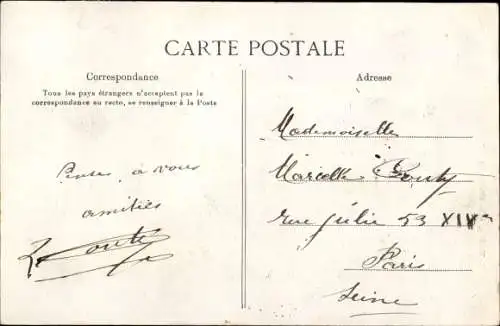 CARTE POSTALE
Correspondance
Tous les pays étrangers n'acceptent pas la
correspondance au recto, se renseigner à la Poste
Adresse
Pensée à vous
amitiés
Mademoiselle
Marcelle
rue Julie 53 XIV
Paris
Seine